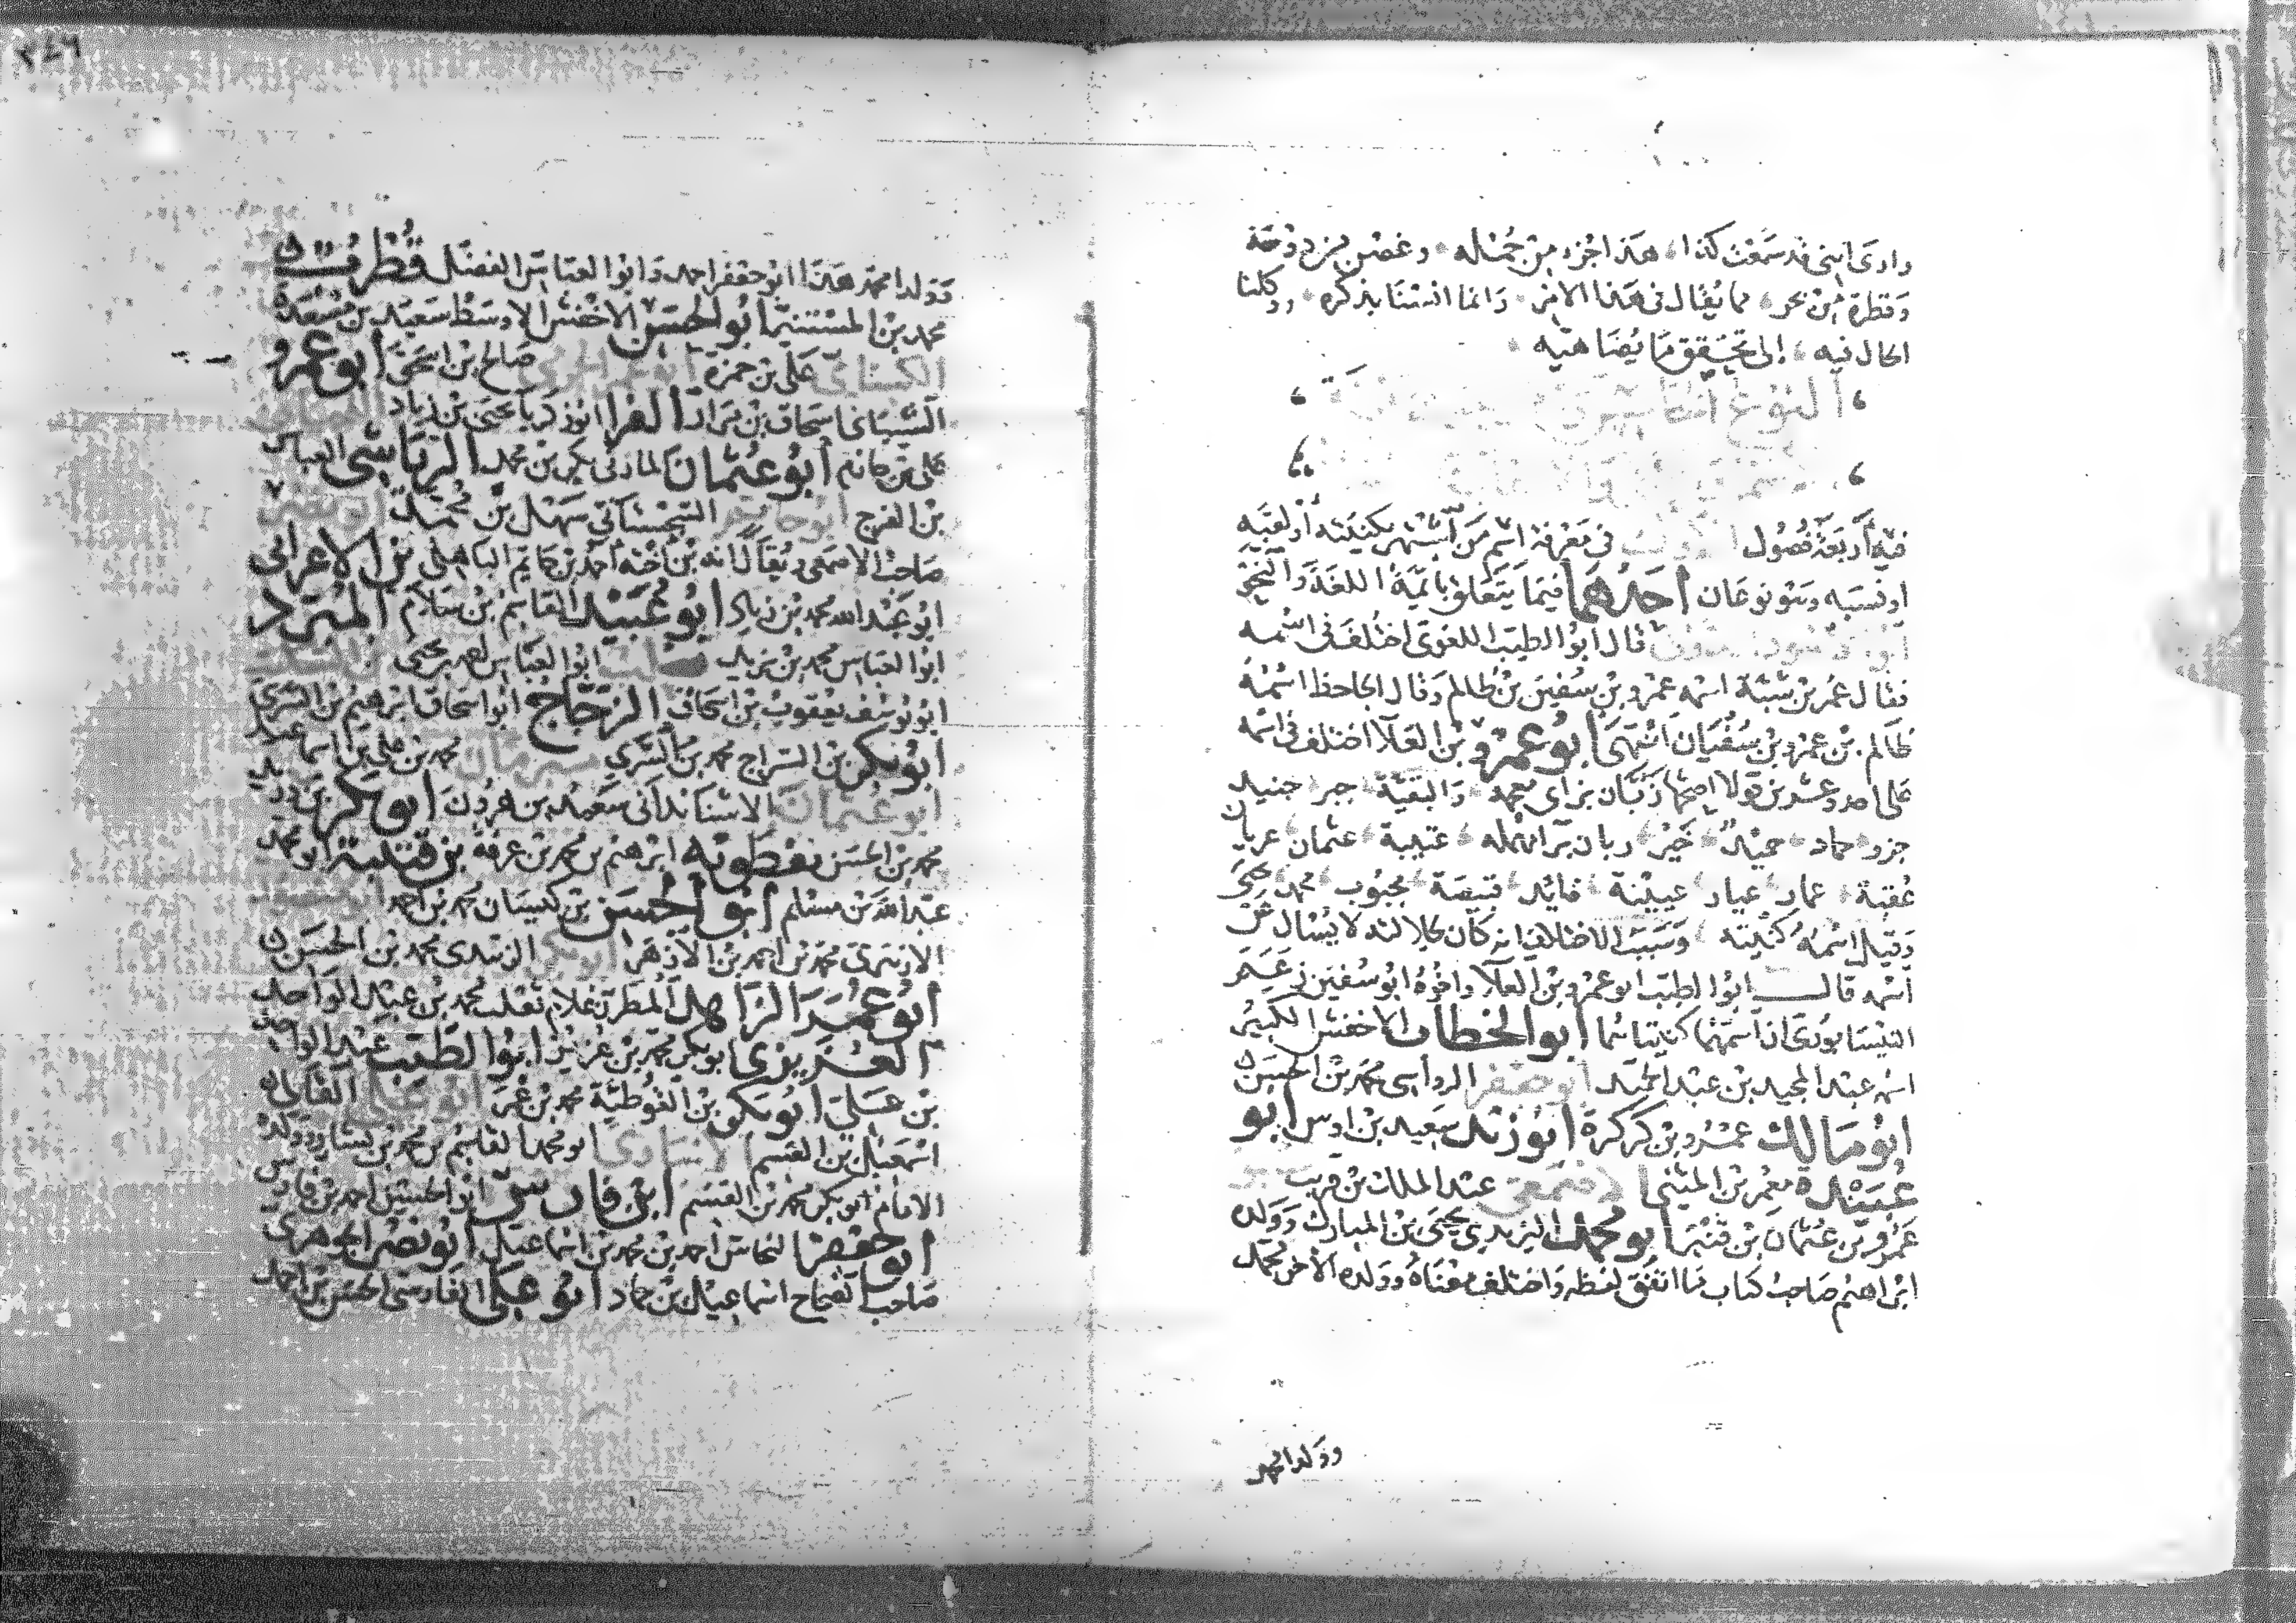 وارى اننى قد سمعت كذا، هذا جزء من جمله، وغصن من دوحة
وقطرة من بحر، مما يقال فى هذا الامر، وانما انسنا بذكره، ووكلنا
الحال فيه، إلى تحقيق ما يضاهيه
النوع
فيه أربعة فصول فى معرفة اسم من اشتهر بكنيته أو لقبه
او نسبه وهو نوعان أحدهما فيما يتعلق بائمة اللغة والنحو
قال ابو الطيب اللغوى اختلف فى اسمه
فقال عمر بن شبة اسمه عمرو بن سفين بن ظالم وقال الجاحظ اسمه
ظالم بن عمرو بن سفيان انتهى أبو عمرو بن العلا اختلف فى اسمه
على احد وعشرين قولا اصحها زبان بزاى معجمة والبقية جبر جنيد
جزو حماد حميد خير ربان براء مهملة عتيبة عثمان عريان
عقبة عمار عيار عيينة فائد قبيصة محبوب محمد يحيى
وقيل اسمه كنيته وسبب الاختلاف انه كان لجلالته لا يسال عن
اسمه قال ابو الطيب ابو عمرو بن العلا واخوه ابو سفين زعم
النيسابورى ان اسمهما كنيتاهما أبو الخطاب الاخفش الكبير
اسمه عبد المجيد بن عبد الحميد أبو جعفر الرواسى محمد بن الحسن
ابو مالك عمرو بن كركرة أبو زيد سعيد بن اوس ابو
عبيدة معمر بن المثنى الاصمعى عبد الملك بن قريب
عمرو بن عثمان بن قنبر أبو محمد اليزيدي يحيى بن المبارك وولده
ابراهيم صاحب كتاب ما اتفق لفظه واختلف معناه وولده الاخر محمد
وولدا محمد
٣٤٦
وولدا محمد هذا ابو جعفر احمد وابو العباس الفضل قطرب
محمد بن المستنير أبو الحسن الاخفش الاوسط سعيد بن مسعدة
الكسائي على بن حمزة أبو عمر الجرمى صالح بن اسحق أبو عمرو
الشيبانى اسحاق بن مرار الفرا ابو زكريا يحيى بن زياد
على بن حازم أبو عثمان المازنى بكر بن محمد الرياشى العباس
بن الفرج أبو حاتم السجستانى سهل بن محمد أبو نصر
صاحب الاصمعى ويقال انه بن اخته احمد بن حاتم الباهلى بن الاعرابى
ابو عبد الله محمد بن زياد ابو عبيد القاسم بن سلام المبرد
ابو العباس محمد بن يزيد ثعلب ابو العباس احمد بن يحيى
ابو يوسف يعقوب بن اسحاق الزجاج ابو اسحاق ابرهيم بن السرى
أبو بكر بن السراج محمد بن السري مبرمان محمد بن على بن اسماعيل
ابو عثمان الاشناندانى سعيد بن هرون أبو بكر بن دريد
محمد بن الحسن نفطويه ابرهيم بن محمد بن عرفة بن قتيبة ابو محمد
عبد الله بن مسلم أبو الحسن بن كيسان محمد بن احمد
الازهرى محمد بن احمد بن الازهر أبو بكر الزبيدى محمد بن الحسن
أبو عمر الزاهد المطرز غلام ثعلب محمد بن عبد الواحد
العزيزى ابو بكر محمد بن عزيز ابو الطيب عبد الواحد
بن على ابو بكر بن القوطية محمد بن عمر ابو على القالى
اسمعيل بن القسم الانبارى ابو محمد القاسم بن محمد بن بشار وولده
الامام ابو بكر محمد بن القسم ابن فارس ابو الحسين احمد بن فارس
ابو جعفر النحاس احمد بن محمد بن اسماعيل أبو نصر الجوهرى
صاحب الصحاح اسماعيل بن حماد أبو على الفارسى الحسن بن احمد